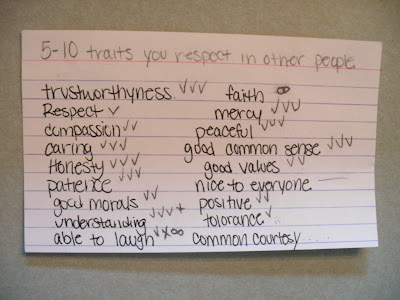 5-10 traits you respect in other people
trustworthyness ✓✓✓
Respect ✓
compassion ✓✓
caring ✓✓✓
Honesty ✓✓✓
patience ✓✓✓
good morals ✓✓
understanding ✓✓✓+
able to laugh ✓×∞
faith ∞
mercy ✓✓✓
peaceful ✓✓✓
good common sense ✓✓✓
good values ✓✓
nice to everyone —
positive ✓✓
tolorance ✓..
common courtesy ....